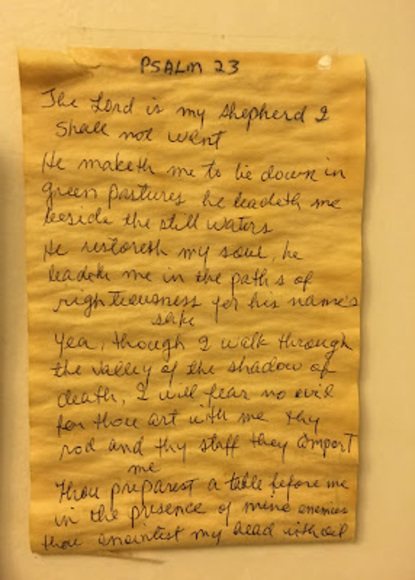 PSALM 23
The Lord is my shepherd I
shall not want
He maketh me to lie down in
green pastures he leadeth me
beside the still waters
He restoreth my soul, he
leadeth me in the paths of
righteousness for his name's
sake
Yea, though I walk through
the valley of the shadow of
death, I will fear no evil
for thou art with me thy
rod and thy staff they comfort
me
Thou preparest a table before me
in the presence of mine enemies
thou anointest my head with oil